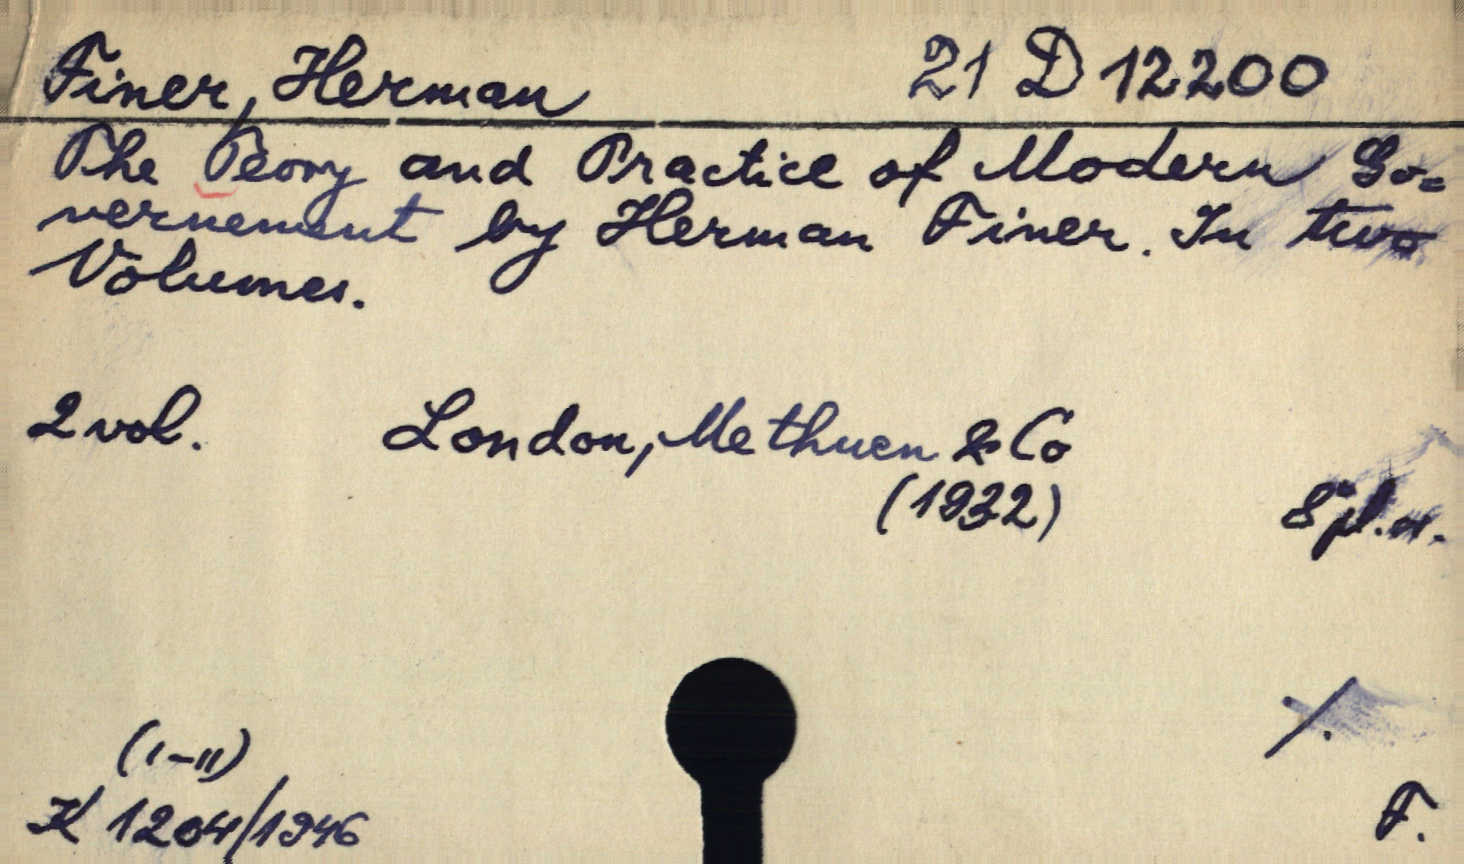 Finer, Herman 21 D 12200
The Teory and Practice of Modern Go=
vernement by Herman Finer. In two
Volumes.
2 vol. London, Methuen & Co
(1932)
8° pl.
(I-II)
K 1204/1946
F.